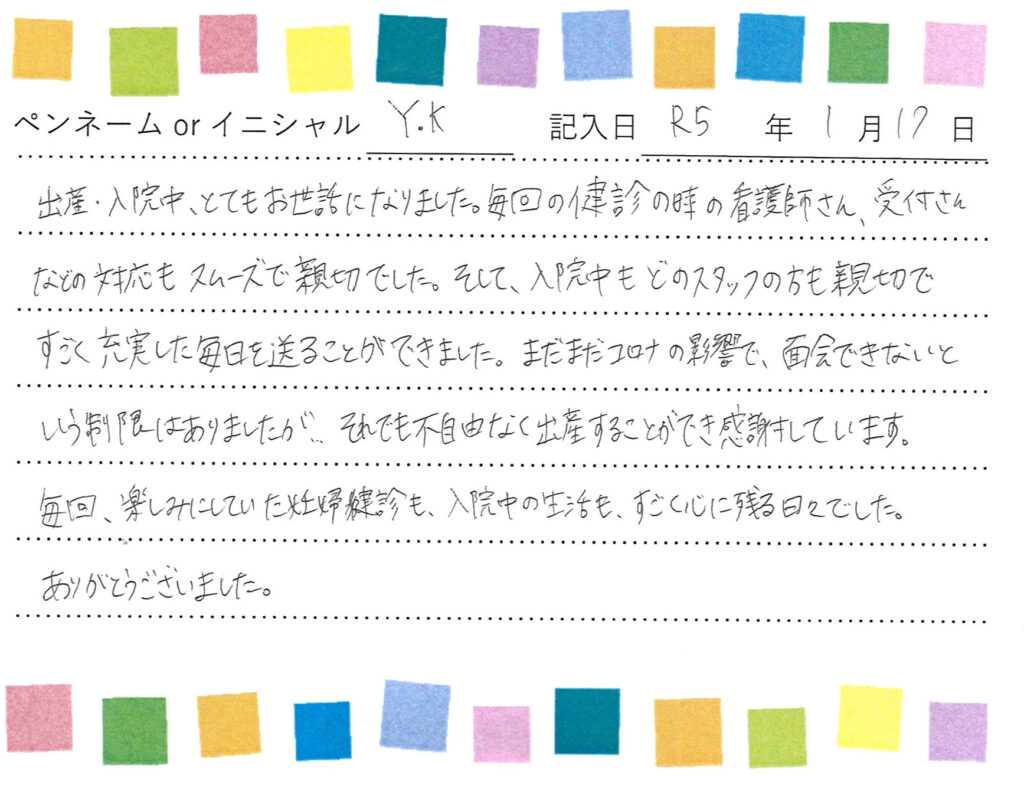 ペンネーム or イニシャル Y.K 記入日 R5 年 1 月 17 日
出産・入院中、とてもお世話になりました。毎回の健診の時の看護師さん、受付さん
などの対応もスムーズで親切でした。そして、入院中もどのスタッフの方も親切で
すごく充実した毎日を送ることができました。まだまだコロナの影響で、面会できないと
いう制限はありましたが、それでも不自由なく出産することができ感謝しています。
毎回、楽しみにしていた妊婦健診も、入院中の生活も、すごく心に残る日々でした。
ありがとうございました。